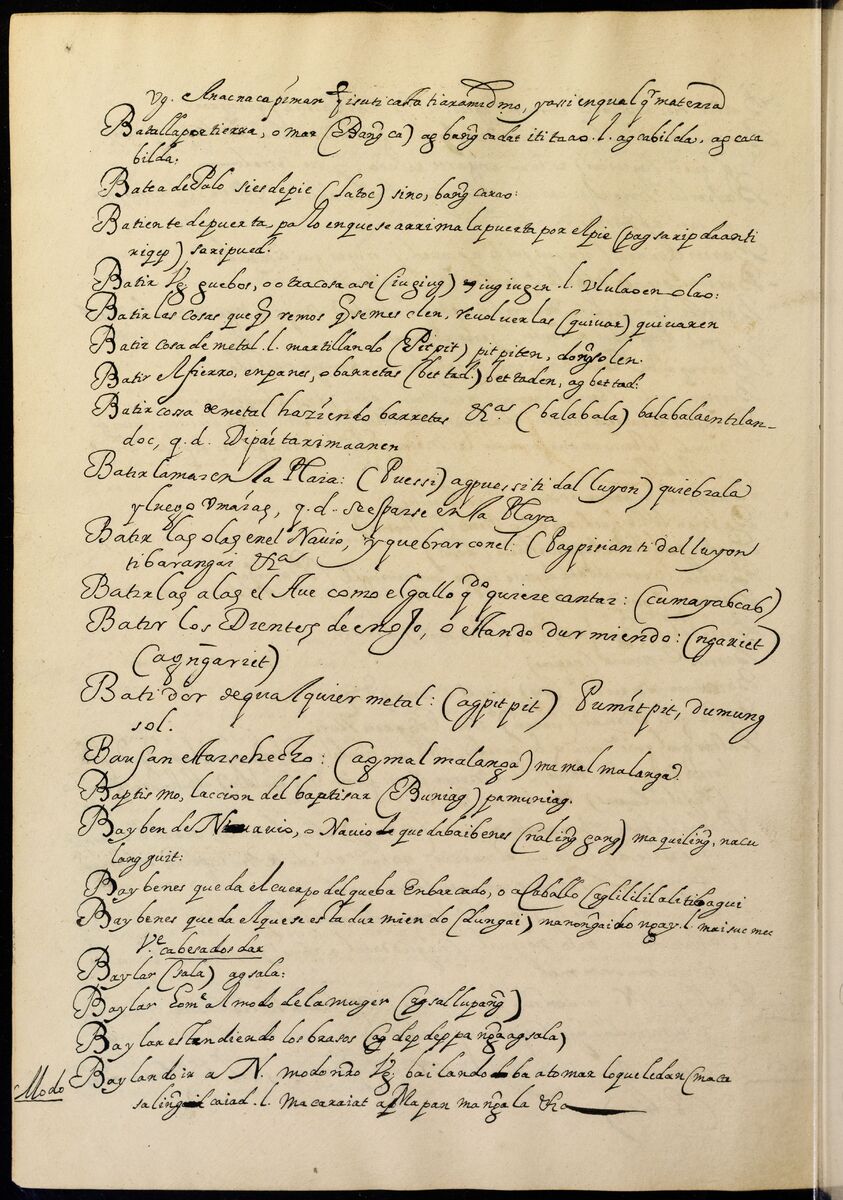 Vg. Anacnacapíman
Batalla por tierra, o mar (Bang̃ca) ag bang̃cadat ititaao .l. agcabilda, agcaca
bilda.
Batea de Palo si es de pie (latoc) sino, bang̃carao:
Batiente de puerta, palo en que se arrima la puerta por el pie (pagsaripdaanti
riqep) saripued.
Batir Vg guebos, o otra cosa asi (iugiug) iugiugen .l. Vlulaoen olao:
Batir las cosas que qremos q se mesclen, revolverlas (quiuar) quiuaren
Batir cosa de metal .l. martillando (Pitpit) pitpiten, dong̃solen.
Batir Afierro, en panes, o barretas (bettad.) bettaden, agbettad:
Batir cossa de metal haziendo barretas &ᵃˢ (balabala) balabalaentilan-
doc, q.d. Dipáitarimaanen
Batir la mar en la Plaia: (Puessi) agpuessiti dalluyon) quiebrala
y luego Vmáras, q.d. se esparse en la Playa
Batir las olas en el Navio, y quebrar con el: (Pagpisianti dalluyon
tibarangai &ᵃ
Batir las alas el Aue como el gallo qᵈᵒ quiere cantar: (cumayabcab)
Batir los Dientes de enojo, o estando durmiendo: (ngariet)
(agn̄gariet)
Batidor de qualquier metal: (agpitpit) Pumítpit, dumung
sol.
Bausan estarse hecho: (agmalmalanga) mamalmalanga.
Baptismo, la accion del baptisar (Buniag) pamuniag.
Bayben de Navio, o Navio que da baibenes (naling̃gang) maquiling̃, nacu
langguit:
Baybenes que da el cuerpo del que ba Enbarcado, o a Caballo (aglilililalitibagui
Baybenes que da el que se está durmiendo (dungai) manong̃aidong̃ay .l. maisucmec
Vᵉ cabesadas dar
Baylar (sala) agsala:
Baylar Homᵉ al modo de la muger (agsallupang̃)
Baylar estendiendo los brasos (agdepdeppa ng̃a agsala)
Modo Baylando ir a N. modo nr̃o Vg: bailando ba a tomar lo que le dan (maca
saling̃ail caiad .l. macaraiat a Mapan mang̃ala &a